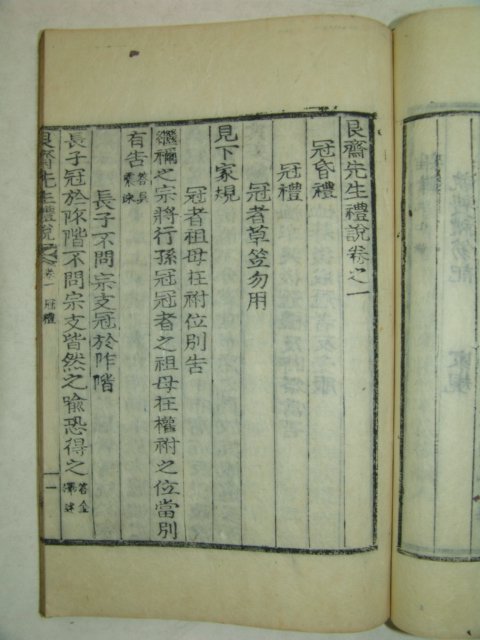 艮齋先生禮說卷之一
冠昏禮
冠禮
冠者草笠勿用
見下家規
冠者祖母在祔位別告
繼禰之宗將行孫冠冠者之祖母在權祔之位當別
有告答吳震泳
長子不問宗支冠於阼階
長子冠於阼階不問宗支皆然之喩恐得之答金澤述
艮齋先生禮說 卷一 冠禮 一